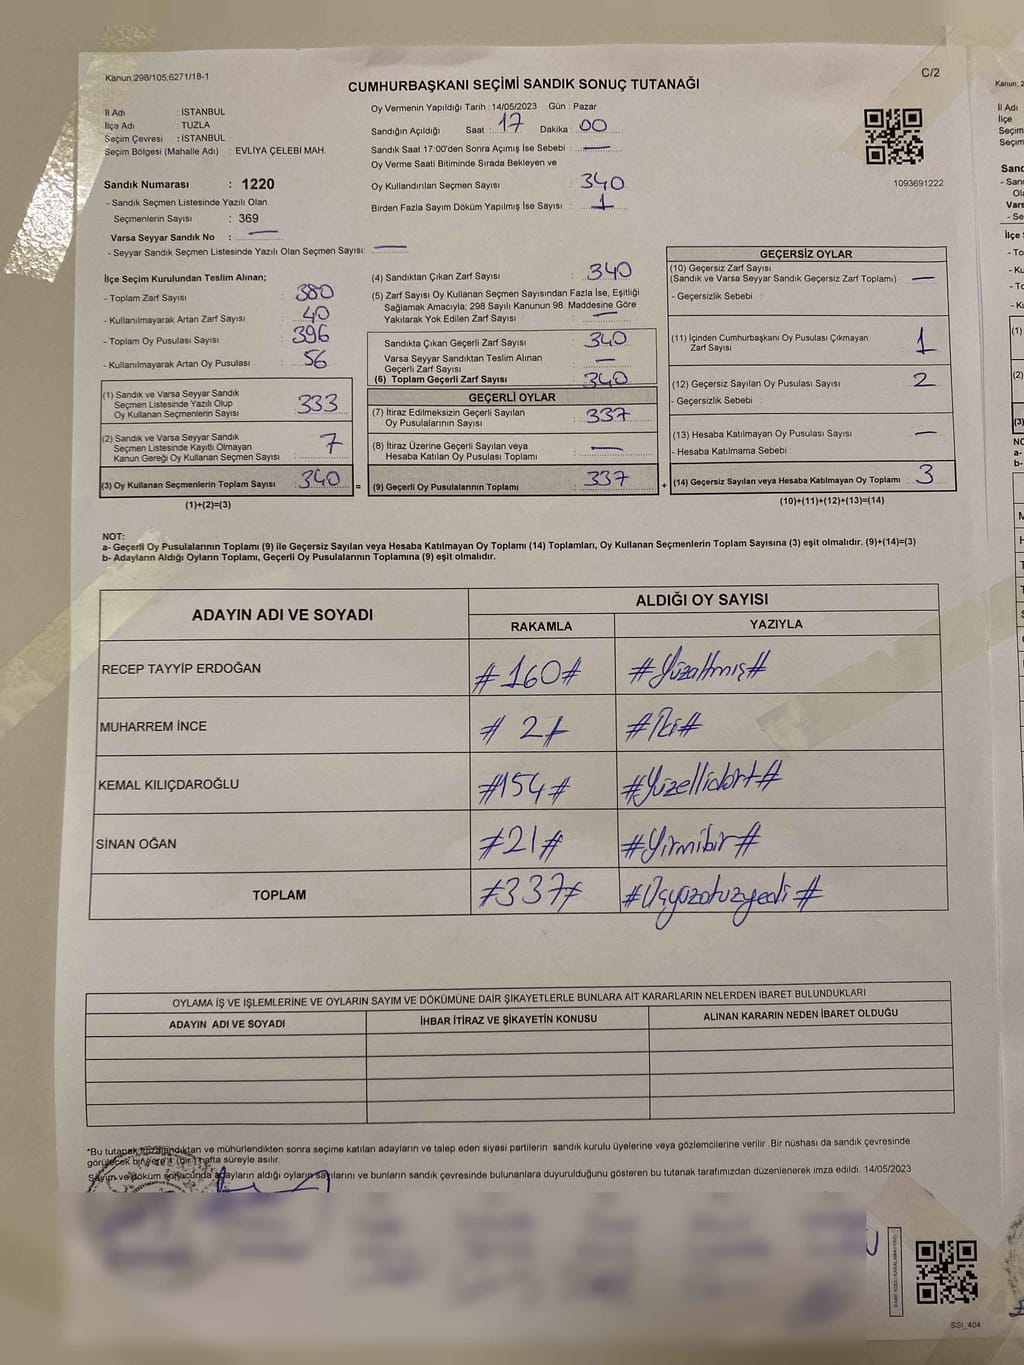 Kanun;298/105;6271/18-1
C/2
CUMHURBAŞKANI SEÇİMİ SANDIK SONUÇ TUTANAĞI
İl Adı : İSTANBUL
İlçe Adı : TUZLA
Seçim Çevresi : İSTANBUL
Seçim Bölgesi (Mahalle Adı) : EVLİYA ÇELEBİ MAH.
Sandık Numarası : 1220
- Sandık Seçmen Listesinde Yazılı Olan
Seçmenlerin Sayısı : 369
Varsa Seyyar Sandık No : —
- Seyyar Sandık Seçmen Listesinde Yazılı Olan Seçmen Sayısı: —
Oy Vermenin Yapıldığı Tarih : 14/05/2023 Gün : Pazar
Sandığın Açıldığı Saat : 17 Dakika : 00
Sandık Saat 17:00'den Sonra Açımış İse Sebebi : —
Oy Verme Saati Bitiminde Sırada Bekleyen ve
Oy Kullandırılan Seçmen Sayısı : 340
Birden Fazla Sayım Döküm Yapılmış İse Sayısı : 1
1093691222
İlçe Seçim Kurulundan Teslim Alınan;
- Toplam Zarf Sayısı : 380
- Kullanılmayarak Artan Zarf Sayısı : 40
- Toplam Oy Pusulası Sayısı : 396
- Kullanılmayarak Artan Oy Pusulası : 56
(1) Sandık ve Varsa Seyyar Sandık
Seçmen Listesinde Yazılı Olup
Oy Kullanan Seçmenlerin Sayısı : 333
(2) Sandık ve Varsa Seyyar Sandık
Seçmen Listesinde Kayıtlı Olmayan
Kanun Gereği Oy Kullanan Seçmen Sayısı : 7
(3) Oy Kullanan Seçmenlerin Toplam Sayısı : 340
(1)+(2)=(3)
(4) Sandıktan Çıkan Zarf Sayısı : 340
(5) Zarf Sayısı Oy Kullanan Seçmen Sayısından Fazla İse, Eşitliği
Sağlamak Amacıyla; 298 Sayılı Kanunun 98. Maddesine Göre
Yakılarak Yok Edilen Zarf Sayısı : —
Sandıkta Çıkan Geçerli Zarf Sayısı : 340
Varsa Seyyar Sandıktan Teslim Alınan
Geçerli Zarf Sayısı : —
(6) Toplam Geçerli Zarf Sayısı : 340
GEÇERLİ OYLAR
(7) İtiraz Edilmeksizin Geçerli Sayılan
Oy Pusulalarının Sayısı : 337
(8) İtiraz Üzerine Geçerli Sayılan veya
Hesaba Katılan Oy Pusulası Toplamı : —
= (9) Geçerli Oy Pusulalarının Toplamı : 337
GEÇERSİZ OYLAR
(10) Geçersiz Zarf Sayısı
(Sandık ve Varsa Seyyar Sandık Geçersiz Zarf Toplamı) : —
- Geçersizlik Sebebi :
(11) İçinden Cumhurbaşkanı Oy Pusulası Çıkmayan
Zarf Sayısı : 1
(12) Geçersiz Sayılan Oy Pusulası Sayısı : 2
- Geçersizlik Sebebi :
(13) Hesaba Katılmayan Oy Pusulası Sayısı : —
- Hesaba Katılmama Sebebi :
+ (14) Geçersiz Sayılan veya Hesaba Katılmayan Oy Toplamı : 3
(10)+(11)+(12)+(13)=(14)
NOT:
a- Geçerli Oy Pusulalarının Toplamı (9) ile Geçersiz Sayılan veya Hesaba Katılmayan Oy Toplamı (14) Toplamları, Oy Kullanan Seçmenlerin Toplam Sayısına (3) eşit olmalıdır. (9)+(14)=(3)
b- Adayların Aldığı Oyların Toplamı, Geçerli Oy Pusulalarının Toplamına (9) eşit olmalıdır.
ADAYIN ADI VE SOYADI
ALDIĞI OY SAYISI
RAKAMLA YAZIYLA
RECEP TAYYİP ERDOĞAN #160# #Yüzaltmış#
MUHARREM İNCE # 2# #İki#
KEMAL KILIÇDAROĞLU #154# #Yüzellidört#
SİNAN OĞAN #21# #Yirmibir#
TOPLAM #337# #Üçyüzotuzyedi#
OYLAMA İŞ VE İŞLEMLERİNE VE OYLARIN SAYIM VE DÖKÜMÜNE DAİR ŞİKAYETLERLE BUNLARA AİT KARARLARIN NELERDEN İBARET BULUNDUKLARI
ADAYIN ADI VE SOYADI İHBAR İTİRAZ VE ŞİKAYETİN KONUSU ALINAN KARARIN NEDEN İBARET OLDUĞU
*Bu tutanak imzalandıktan ve mühürlendikten sonra seçime katılan adayların ve talep eden siyasi partilerin sandık kurulu üyelerine veya gözlemcilerine verilir .Bir nüshası da sandık çevresinde
görülecek bir yere 1 (bir) hafta süreyle asılır.
Sayım ve döküm sonucunda adayların aldığı oyların sayılarını ve bunların sandık çevresinde bulunanlara duyurulduğunu gösteren bu tutanak tarafımızdan düzenlenerek imza edildi. 14/05/2023
SSI_404